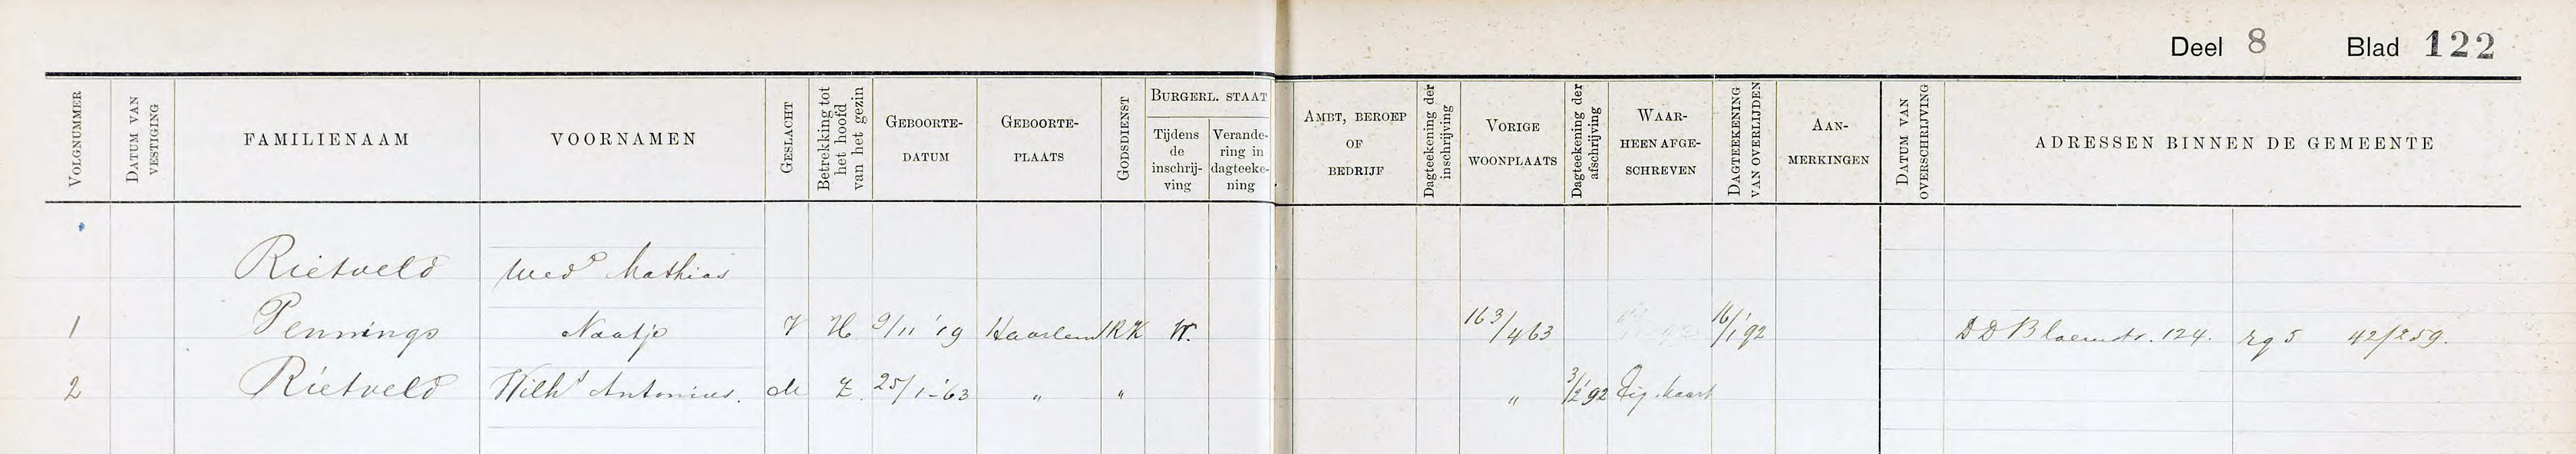 Deel 8 Blad 122
VOLGNUMMER
DATUM VAN VESTIGING
FAMILIENAAM
VOORNAMEN
GESLACHT
Betrekking tot het hoofd van het gezin
GEBOORTE-DATUM
GEBOORTE-PLAATS
GODSDIENST
BURGERL. STAAT
Tijdens de inschrij-ving
Verande-ring in dagteeke-ning
AMBT, BEROEP OF BEDRIJF
Dagteekening der inschrijving
VORIGE WOONPLAATS
Dagteekening der afschrijving
WAAR-HEEN AFGE-SCHREVEN
DAGTEEKENING VAN OVERLIJDEN
AAN-MERKINGEN
DATUM VAN OVERSCHRIJVING
ADRESSEN BINNEN DE GEMEENTE
Rietveld Wede Mathias
1 Pennings Naatje V H 9/11 '19 Haarlem RK W. 163/463 16/1 '92 DD Bloemstr. 124. rg 5 42/259.
2 Rietveld Wilhs Antonius. M Z. 25/1-'63 " " " 3/2 '92 Eig. kaart